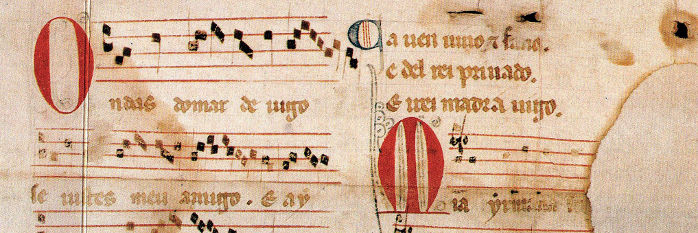 Ondas domar de uigo
se uistes meu amigo. E ay
Ca uen uiuo ⁊ sano.
e del rei priuado.
E irei madra uigo.
Mia yrmana